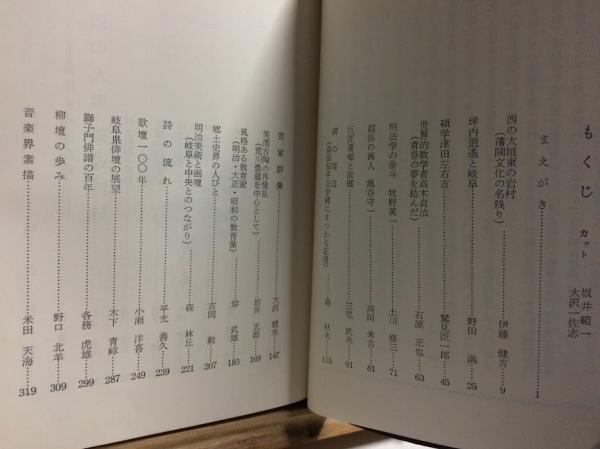 もくじ
カット
坂井範一
大沢一佐志
まえがき 1
西の大垣東の岩村
(藩閥文化の名残り) 伊藤 健吉 9
坪内逍遥と岐阜 野田 満 25
碩学津田左右吉 鷲見臣一郎 45
世界的数学者高木貞治
(青春の夢を結んだ) 石原 正也 63
刑法学の泰斗 牧野英一 土川 修三 71
超俗の画人 熊谷守一 高田 米吉 81
三宅 武夫 91
秋夫 115
群像 大沢 碧水 147
美濃古陶の再発見
(荒川豊蔵を中心として) 岩井 五郎 169
風格ある教育家
(明治・大正・昭和の教育像) 武雄 183
郷土史界の人びと 吉岡 勲 207
明治美術と画壇
(岐阜と中央とのつながり) 森 林丘 221
詩の流れ 平光 善久 239
歌壇一〇〇年 小瀬 洋喜 249
岐阜県俳壇の展望 木下 青嶂 287
獅子門俳諧の百年 各務 虎雄 299
柳壇の歩み 野口 北羊 309
音楽界素描 米田 天海 319